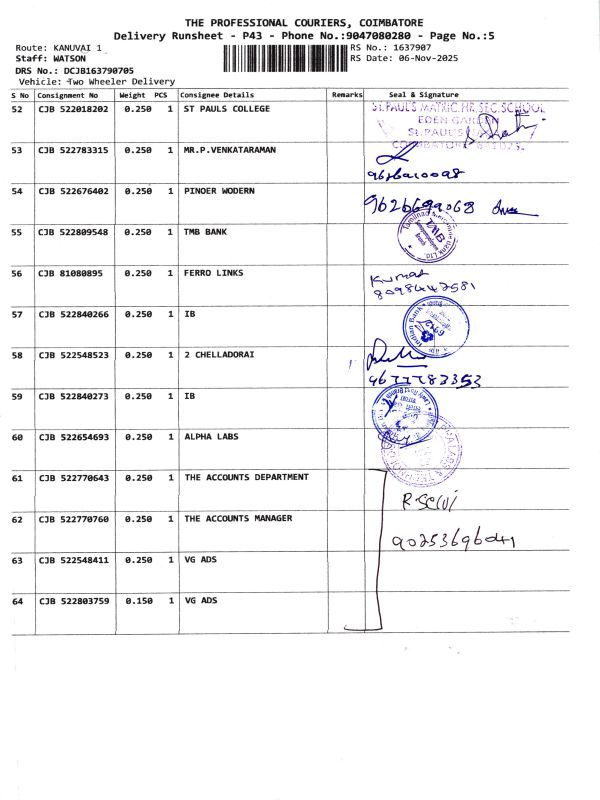 THE PROFESSIONAL COURIERS, COIMBATORE
Delivery Runsheet - P43 - Phone No.:9047080280 - Page No.:5
Route: KANUVAI 1 RS No.: 1637907
Staff: WATSON RS Date: 06-Nov-2025
DRS No.: DCJB163790705
Vehicle: Two Wheeler Delivery
S No Consignment No Weight PCS Consignee Details Remarks Seal & Signature
52 CJB 522018202 0.250 1 ST PAULS COLLEGE
ST. PAUL'S MATRIC.HR.SEC.SCHOOL
EDEN GARDEN
ST. PAUL'S
COIMBATORE
53 CJB 522783315 0.250 1 MR.P.VENKATARAMAN
54 CJB 522676402 0.250 1 PINOER WODERN
9626699068
55 CJB 522809548 0.250 1 TMB BANK
TMB
56 CJB 81080895 0.250 1 FERRO LINKS
Kumar
8098442581
57 CJB 522840266 0.250 1 IB
Indian Bank
58 CJB 522548523 0.250 1 2 CHELLADORAI
9677783353
59 CJB 522840273 0.250 1 IB
60 CJB 522654693 0.250 1 ALPHA LABS
61 CJB 522770643 0.250 1 THE ACCOUNTS DEPARTMENT
R. Selvi
62 CJB 522770760 0.250 1 THE ACCOUNTS MANAGER
9025369641
63 CJB 522548411 0.250 1 VG ADS
64 CJB 522803759 0.150 1 VG ADS